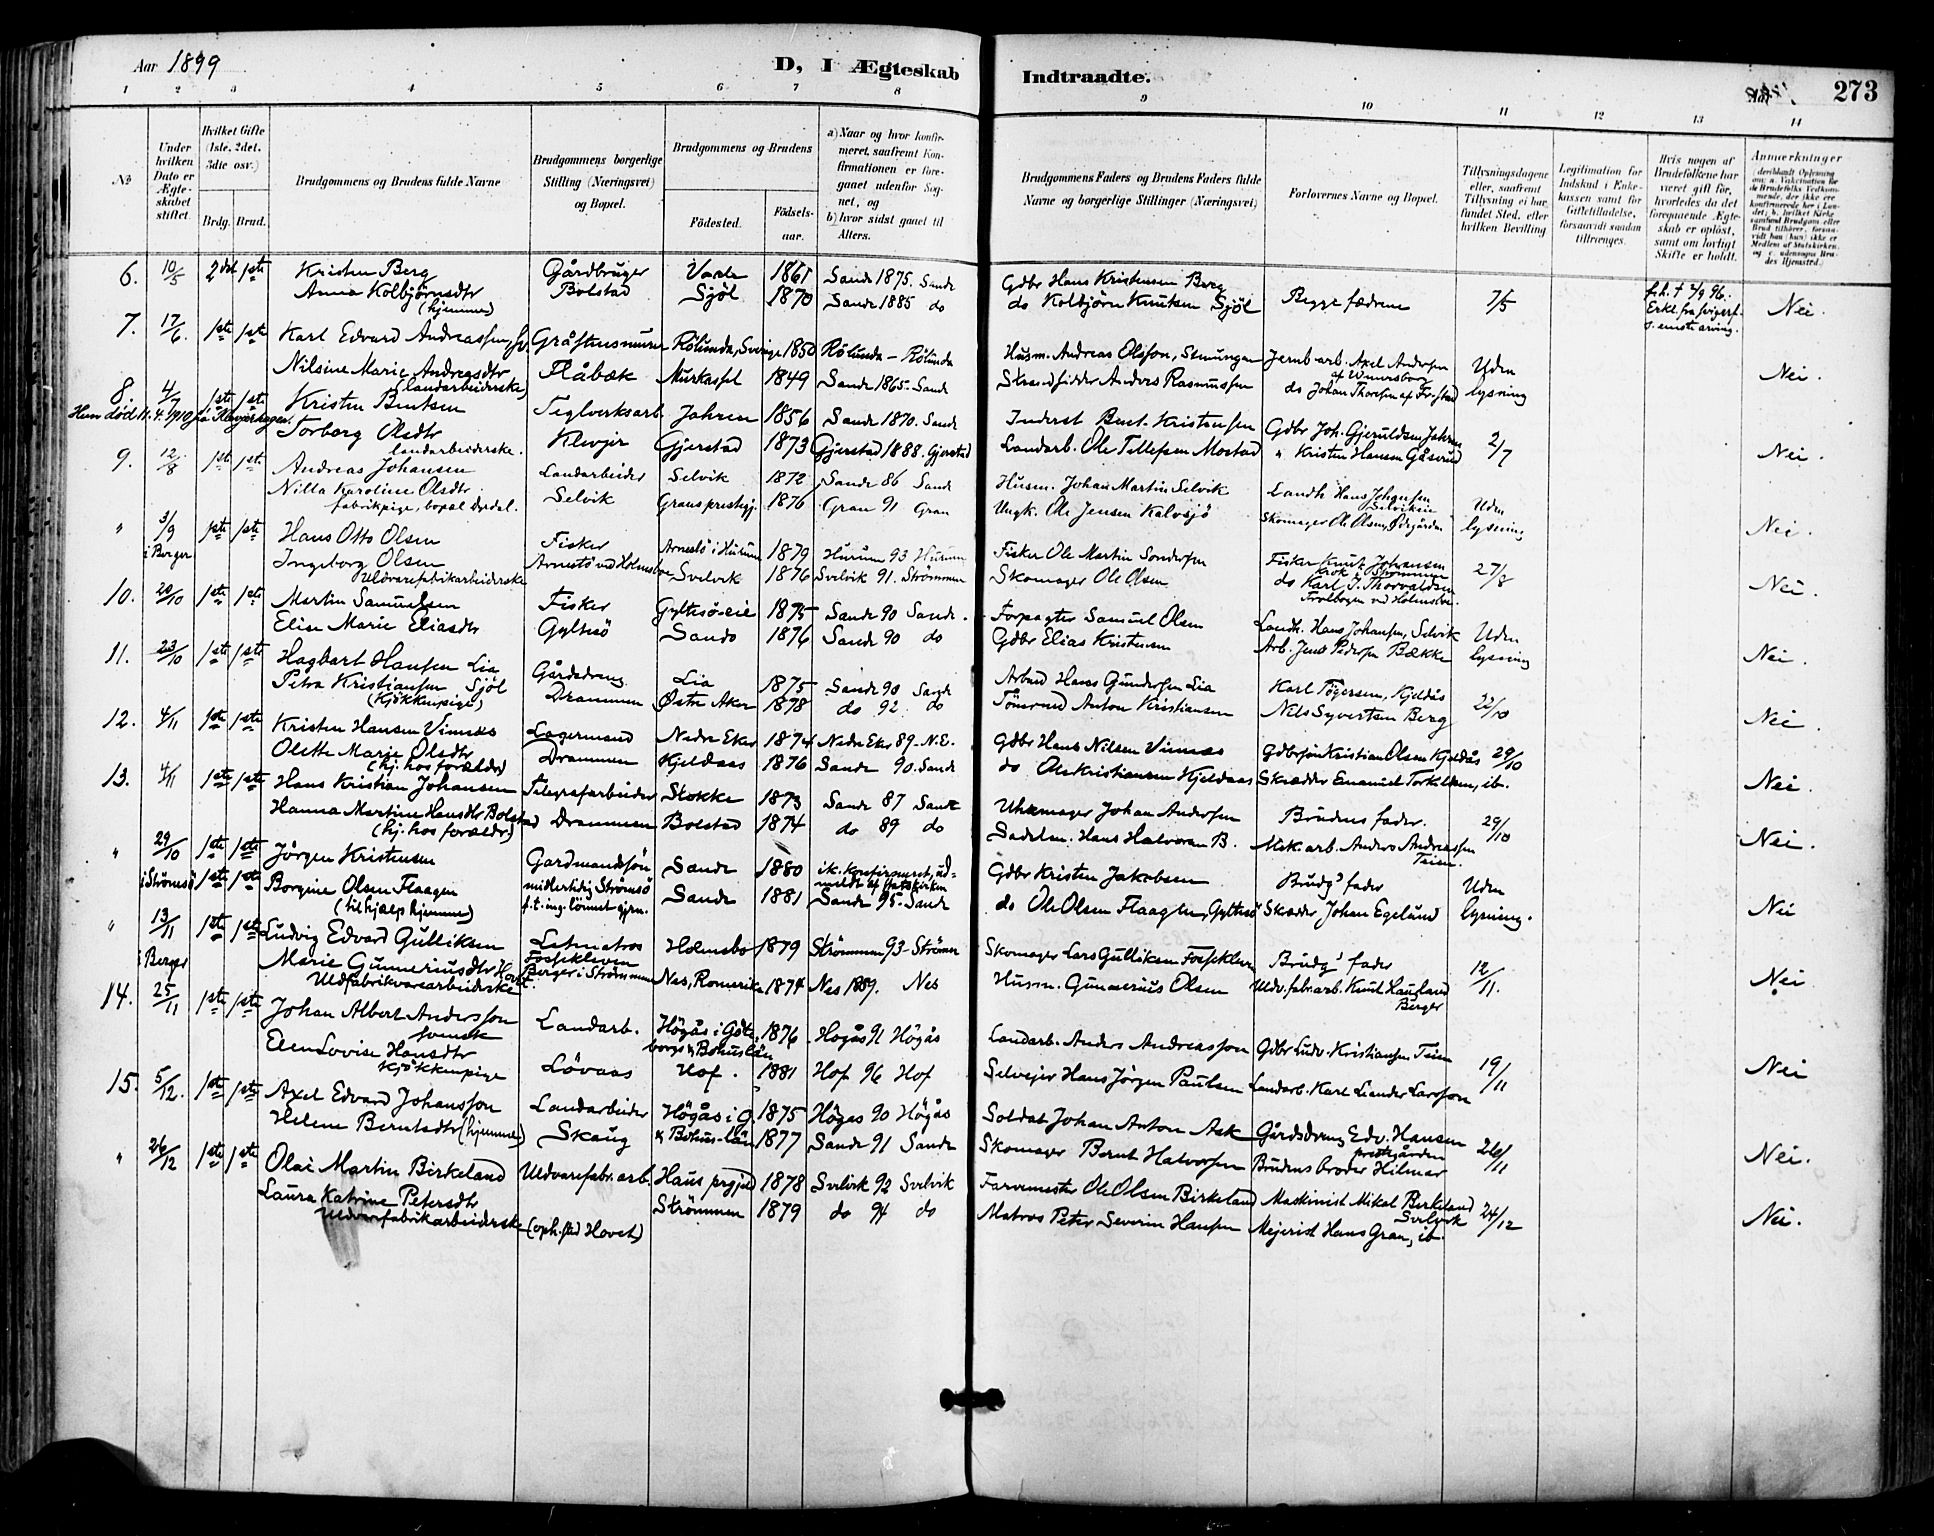 Aar 1899
D, I Ægteskab Indtraadte.
273
1 2 3 4 5 6 7 8 9 10 11 12 13 14
No
Under hvilken Dato er Ægteskabet stiftet.
Hvilket Gifte (1ste, 2det, 3die osv.)
Brdg. Brud.
Brudgommens og Brudens fulde Navne
Brudgommens borgerlige Stilling (Næringsvei) og Bopæl.
Brudgommens og Brudens
Födested.
Födselsaar.
a) Naar og hvor konfirmeret, saafremt Konfirmationen er foregaaet udenfor Sognet, og
b) hvor sidst gaaet til Alters.
Brudgommens Faders og Brudens Faders fulde Navne og borgerlige Stillinger (Næringsvei)
Forlovernes Navne og Bopæl.
Tillysningsdagene eller, saafremt Tillysning ei har fundet Sted, efter hvilken Bevilling
Legitimation for Indskud i Enkekassen samt for Giftetilladelse, forsaavidt saadan tiltrænges.
Hvis nogen af Brudefolkene har været gift før, hvorledes da det foregaaende Ægteskab er oplöst, samt om lovligt Skifte er holdt.
Anmærkninger
6. 10/5 2det 1ste Kristen Berg Gårdbruger 1861 Sande 1875. Sande Gdbr Hans Kristensen Berg Begge fædrene 7/5 Nei.
Anna Kolbjørnsdtr Bolstad Sjöl 1870 Sande 1885 do do Kolbjörn Knutsen Sjöl
(hjemme)
7. 17/6 1ste 1ste Karl Edvard Andreassen, Gråstensmurer Rölunda, Sverige 1850 Rölunda - Rölunda Husm. Andreas Olsson, Jernb arb. Axel Andersen Uden lysning Nei.
Nilsine Marie Andreasdtr Flåbæk 1849 Sande 1865. Sande Anders Rasmussen do Johan Thoresen
(landarbeiderske)
8. 4/7 1ste 1ste Kristen Bentsen Teglverksarb. Jahren 1856 Sande 1870. Sande Inderst Bent Kristensen Gdbr Joh. Gjeruldsen Jahren 2/7 Nei.
Torborg Olsdtr Klevjer Gjerstad 1873 Gjerstad 1888. Gjerstad Landarb. Ole Tellefsen Mostad " Kristen Hansen Gåserud
landarbeiderske.
9. 12/8 1ste 1ste Andreas Johansen Landarbeider Selvik 1872 Sande 86 Sande Husm. Johan Martin Selvik Landh Hans Johansen Selviken Uden lysning Nei.
Nilla Karoline Olsdtr Selvik Grans prestegj. 1876 Gran 91 Gran Ungk. Ole Jensen Kalvsjö Skomager Ole Olsen, Ødegården
fabrikpige, bopæl Dyrdal.
" 3/9 i Berger 1ste 1ste Hans Otto Olsen Fisker Arnestö i Hurum 1879 Hurum 93 Hurum Fisker Ole Martin Sondresen Fisker Knut Johansen 27/8 Nei.
Ingeborg Olsen Arnestö ved Holmsbo Svelvik 1876 Svelvik 91. Strömmen Skomager Ole Olsen do Karl J. Thorvaldsen
Uldvarefabrikarbeiderske
10. 20/10 1ste 1ste Martin Samuelsen Fisker Gyltesö-eie 1875 Sande 90 Sande. Forpagter Samuel Olsen Landh. Hans Johansen, Selvik Uden lysning Nei.
Elise Marie Eliasdtr Gyltesö Sandö 1876 Sande 90 do Gdbr Elias Kristensen Arb. Jens Pedersen Bække
11. 23/10 1ste 1ste Hagbart Hansen Lia Gårdsdreng Lia 1875 Sande 90 Sande Arbmd Hans Gundersen Lia Karl Tögersen, Kjeldås 22/10 Nei.
Petra Kristiansen Sjöl Drammen Østre Aker 1878 do 92 do Tömrmd Anton Kristiansen Nils Syvertsen Berg
(Kjökkenpige)
12. 4/11 1ste 1ste Kristen Hansen Vinnæs Lagermand Nedre Eker 1874 Nedre Eker 89 - N.E. Gdbr Hans Nilsen Vinnæs Gdbrsön Kristian Olsen Kjeldås 29/10 Nei.
Olette Marie Olsdtr Drammen Kjeldaas 1876 Sande 90. Sande do Ole Kristiansen Kjeldaas Skrædder Emanuel Torkildsen, ib.
(hj. hos foræld)
13. 4/11 1ste 1ste Hans Kristian Johansen Telegrafarbeider Stokke 1873 Sande 87 Sande Uhrmager Johan Andersen Brudens fader. 29/10 Nei.
Hanna Martine Hansdtr Bolstad Drammen Bolstad 1874 do 89 do Sadelm. Hans Halvorsen B. Mek. arb. Anders Andreassen Teien.
(hj. hos forældr)
" 29/10 i Strömsö 1ste 1ste Jörgen Kristensen Gardmandssön Sande 1880 ik. konfirmeret, udmeldt af statskirken Gdbr Kristen Jakobsen Brudg's fader Uden lysning. Nei
1ste 1ste Borgine Olsen Flaagen midlertidig Strömsö Sande 1881 Sande 95. Sande do Ole Olsen Flaagen, Gyltesö Skædder Johan Egelund
(til hjælp hjemme) f. t. ing. lönnet gjern.
" 13/11 i Berger 1ste 1ste Ludvig Edvard Gulliksen Letmatros Holmsbo 1879 Strömmen 93 - Strömm Skomager Lars Gulliksen Fossekleven Brudg's fader 12/11. Nei
Marie Gunneriusdtr Hovet. Fossekleven Berger i Strömmen Nes, Romerike 1874 Nes 1889. Nes Husm. Gunnerius Olsen Uldv. fab. arb. Knut Haugland Berger
Uldfabrikvarearbeiderske
14. 25/11 1ste 1ste Johan Albert Andersson Landarb. Högås i Göteborgs & Bohuslän 1876 Högås 91 Högås Landarb. Anders Andreasson Gdbr Ludv. Kristiansen Teien 19/11 Nei
svensk
Elen Lovise Hansdtr Lövaas Hof. 1881 Hof 96 Hof Selvejer Hans Jörgen Paulsen Landarb. Karl Leander Larsson
Kjökkenpige
15. 5/12. 1ste 1ste Axel Edvard Johansson Landarbeider Högås i G. & Bohus-län 1875 Högas 90 Högås Soldat Johan Anton Ask Gårdsdreng Edv. Hansen prestgården 26/11 Nei.
Helene Berntsdtr (hjemme) Skaug 1877 Sande 91 Sande Skomager Bernt Halvorsen Brudens broder Hilmar
" 26/12 1ste 1ste Olai Martin Birkeland Uldvarefabr. arb. Haus prgjeld 1878 Svelvik 92 Svelvik Farvemester Ole Olsen Birkeland Maskinist Mikal Birkeland Svelvik 24/12 Nei.
Laura Katrine Petersdtr Strömmen 1879 do 94 do Matros Peter Severin Hansen Mejerist Hans Gran, ib.
Uldvarefabrikarbeiderske (oph. sted Hovet)